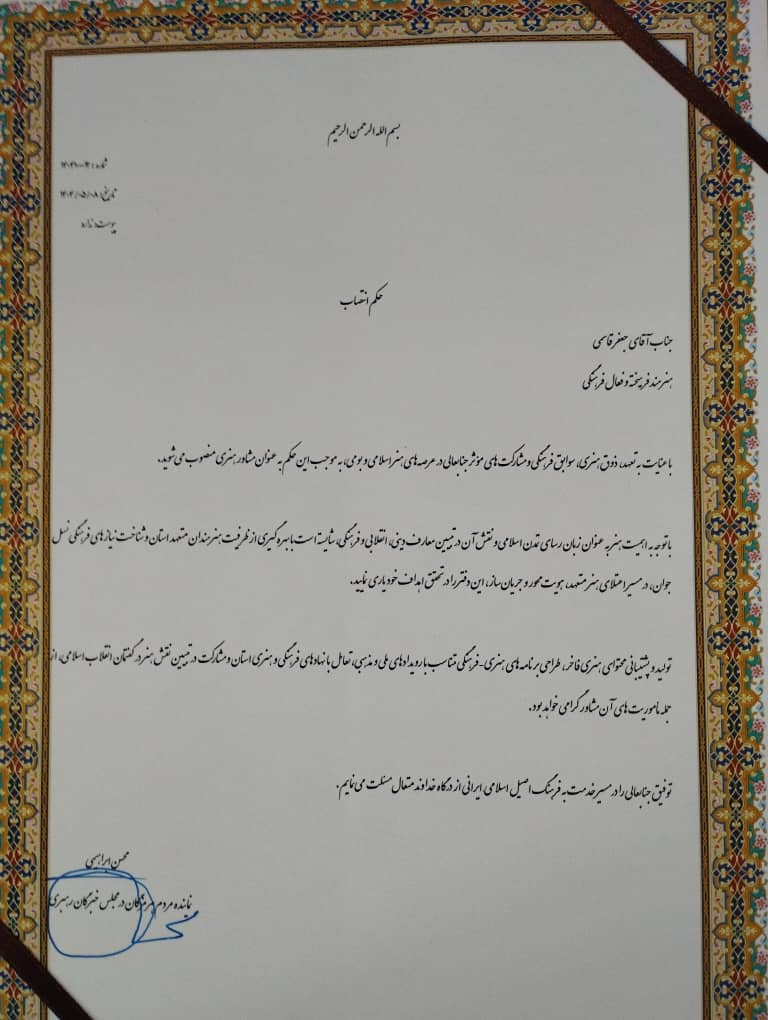 بسم الله الرحمن الرحیم
شماره: ۱۴۰۴۲۰۰۰۳
تاریخ: ۱۴۰۴/۰۵/۰۸
پیوست: ندارد
حکم انتصاب
جناب آقای جعفر قاسمی
هنرمند فرهیخته و فعال فرهنگی
با عنایت به تعهد، ذوق هنری، سوابق فرهنگی و مشارکت های مؤثر جنابعالی در عرصه های هنر اسلامی و بومی، به موجب این حکم به عنوان مشاور هنری منصوب می شوید.
با توجه به اهمیت هنر به عنوان زبان رسای تمدن اسلامی و نقش آن در تبیین معارف دینی، انقلابی و فرهنگی، شایسته است با بهره گیری از ظرفیت هنرمندان متعهد استان و شناخت نیازهای فرهنگی نسل
جوان، در مسیر اعتلای هنر متعهد، هویت محور و جریان ساز، این دفتر را در تحقق اهداف خود یاری نمایید.
تولید و پشتیبانی محتوای هنری فاخر، طراحی برنامه های هنری-فرهنگی متناسب با رویدادهای ملی و مذهبی، تعامل با نهادهای فرهنگی و هنری استان و مشارکت در تبیین نقش هنر در گفتمان انقلاب اسلامی، از
جمله ماموریت های آن مشاور گرامی خواهد بود.
توفیق جنابعالی را در مسیر خدمت به فرهنگ اصیل اسلامی ایرانی از درگاه خداوند متعال مسئلت می نمایم.
محسن ابراهیمی
نماینده مردم هرمزگان در مجلس خبرگان رهبری